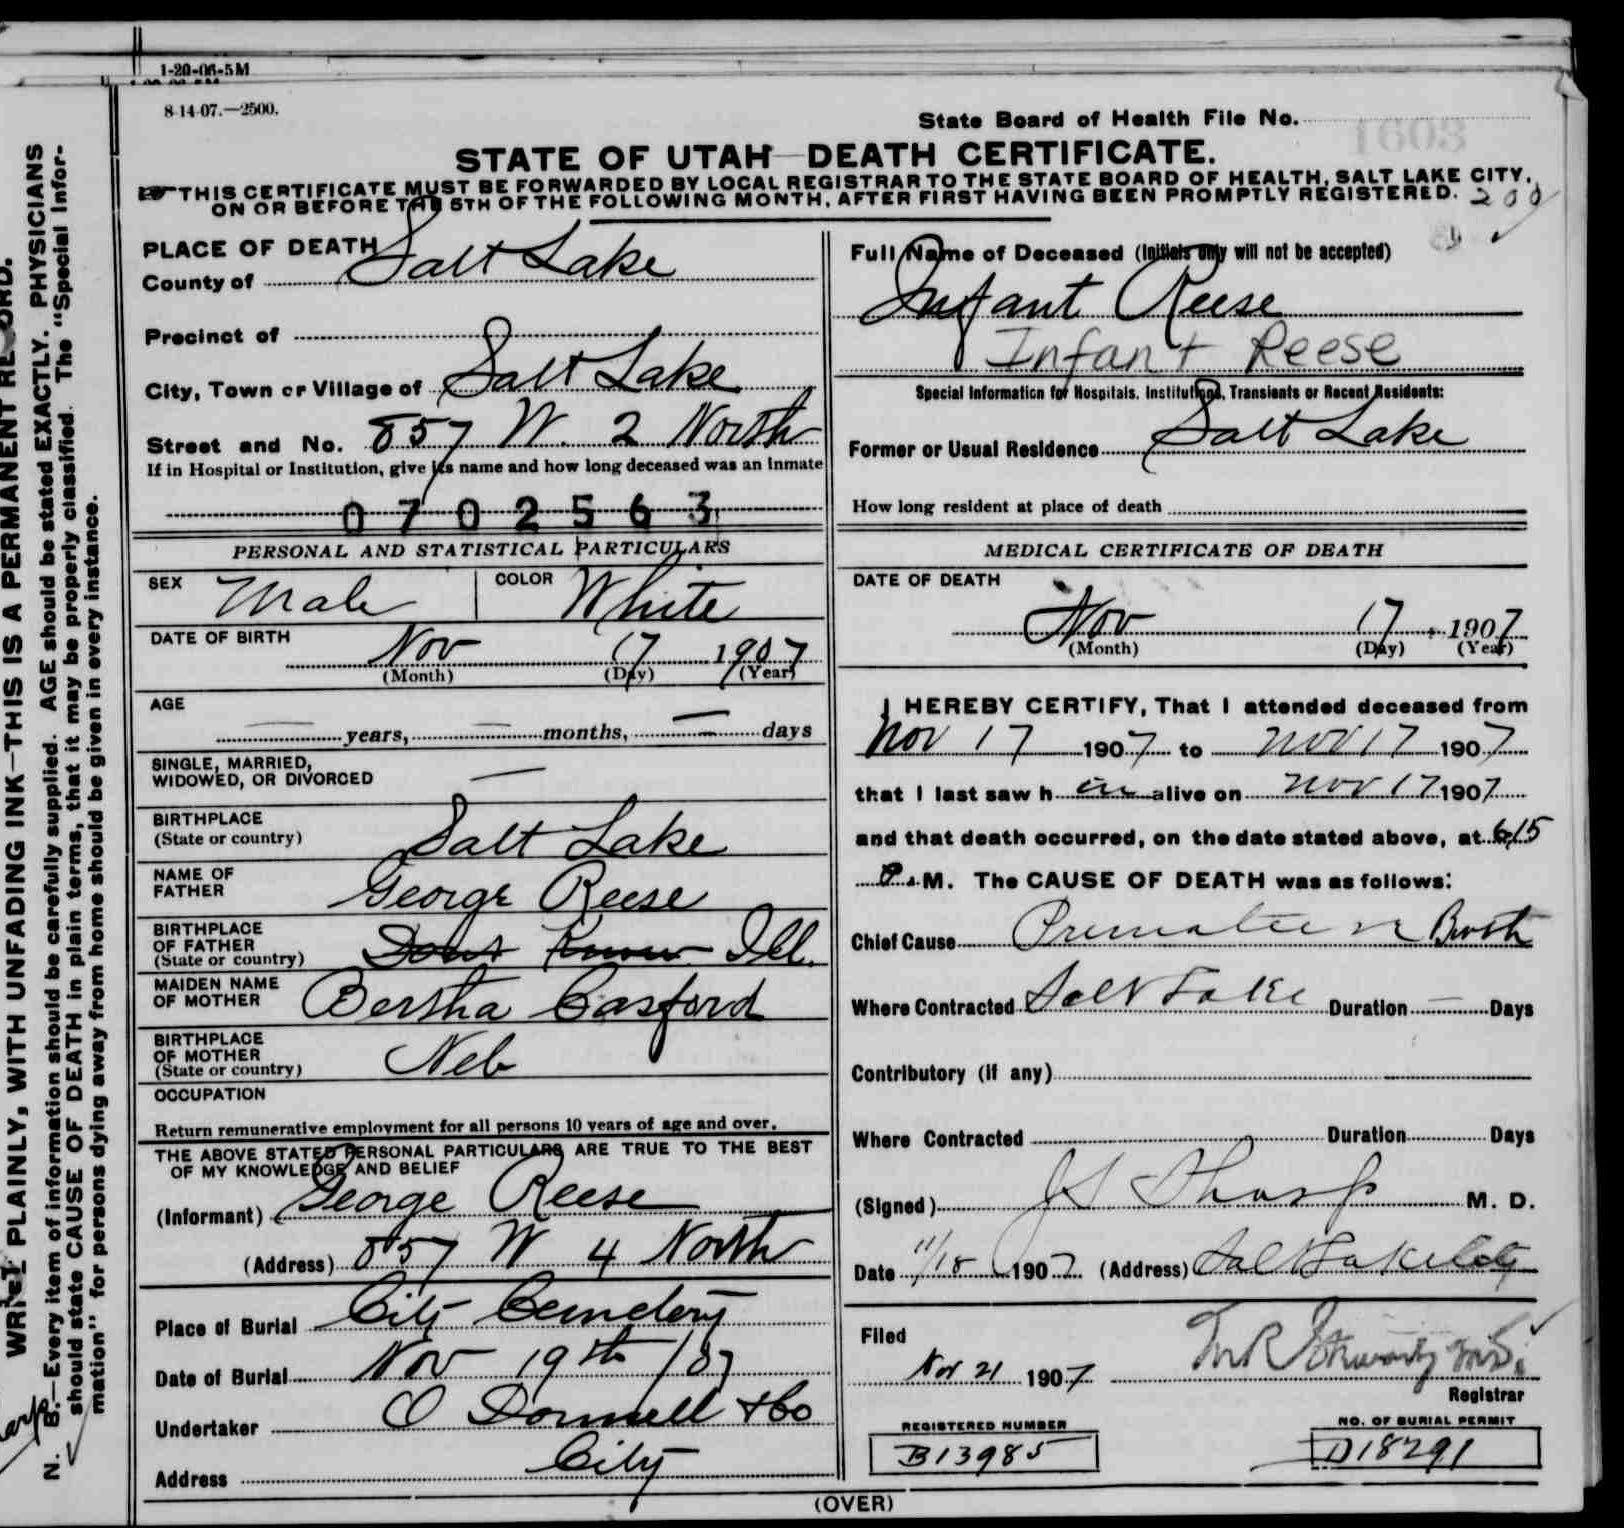 1-20-06-5M
8-14-07.—2500.
State Board of Health File No.
1603
STATE OF UTAH—DEATH CERTIFICATE.
THIS CERTIFICATE MUST BE FORWARDED BY LOCAL REGISTRAR TO THE STATE BOARD OF HEALTH, SALT LAKE CITY,
ON OR BEFORE THE 5TH OF THE FOLLOWING MONTH, AFTER FIRST HAVING BEEN PROMPTLY REGISTERED. 200
WRITE PLAINLY, WITH UNFADING INK—THIS IS A PERMANENT RECORD.
N. B.—Every item of information should be carefully supplied. AGE should be stated EXACTLY. PHYSICIANS
should state CAUSE OF DEATH in plain terms, that it may be properly classified. The "Special Infor-
mation" for persons dying away from home should be given in every instance.
PLACE OF DEATH
County of Salt Lake
Precinct of
City, Town or Village of Salt Lake
Street and No. 857 W. 2 North
If in Hospital or Institution, give its name and how long deceased was an inmate
0702563
PERSONAL AND STATISTICAL PARTICULARS
SEX Male COLOR White
DATE OF BIRTH
Nov 17 1907
(Month) (Day) (Year)
AGE
— years, — months, — days
SINGLE, MARRIED,
WIDOWED, OR DIVORCED —
BIRTHPLACE
(State or country) Salt Lake
NAME OF
FATHER George Reese
BIRTHPLACE
OF FATHER
(State or country) Dont Know Ill.
MAIDEN NAME
OF MOTHER Bertha Casford
BIRTHPLACE
OF MOTHER
(State or country) Neb
OCCUPATION
Return remunerative employment for all persons 10 years of age and over.
THE ABOVE STATED PERSONAL PARTICULARS ARE TRUE TO THE BEST
OF MY KNOWLEDGE AND BELIEF
(Informant) George Reese
(Address) 857 W 4 North
Place of Burial City Cemetery
Date of Burial Nov 19th /07
Undertaker O Donnell & Co
Address City
Full Name of Deceased (Initials only will not be accepted)
Infant Reese
Infant Reese
Special Information for Hospitals, Institutions, Transients or Recent Residents:
Former or Usual Residence Salt Lake
How long resident at place of death
MEDICAL CERTIFICATE OF DEATH
DATE OF DEATH
Nov 17, 1907
(Month) (Day) (Year)
I HEREBY CERTIFY, That I attended deceased from
Nov 17 1907 to Nov 17 1907
that I last saw h im alive on Nov 17 1907
and that death occurred, on the date stated above, at 6,15
P.M. The CAUSE OF DEATH was as follows:
Chief Cause Premature Birth
Where Contracted Salt Lake Duration — Days
Contributory (if any)
Where Contracted Duration Days
(Signed) J S Sharp M. D.
Date 11/18 1907 (Address) Salt Lake City
Filed
Nov 21 1907
Registrar
REGISTERED NUMBER
B13985
NO. OF BURIAL PERMIT
D18291
(OVER)